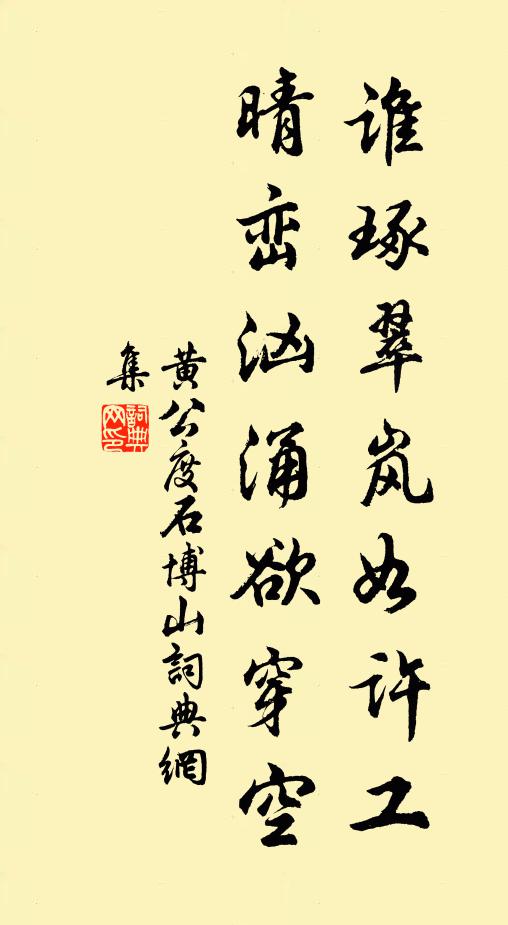 谁琢翠岚如许工
晴峦汹涌欲穿空
黄公度石博山詞典網
集
詞典网印